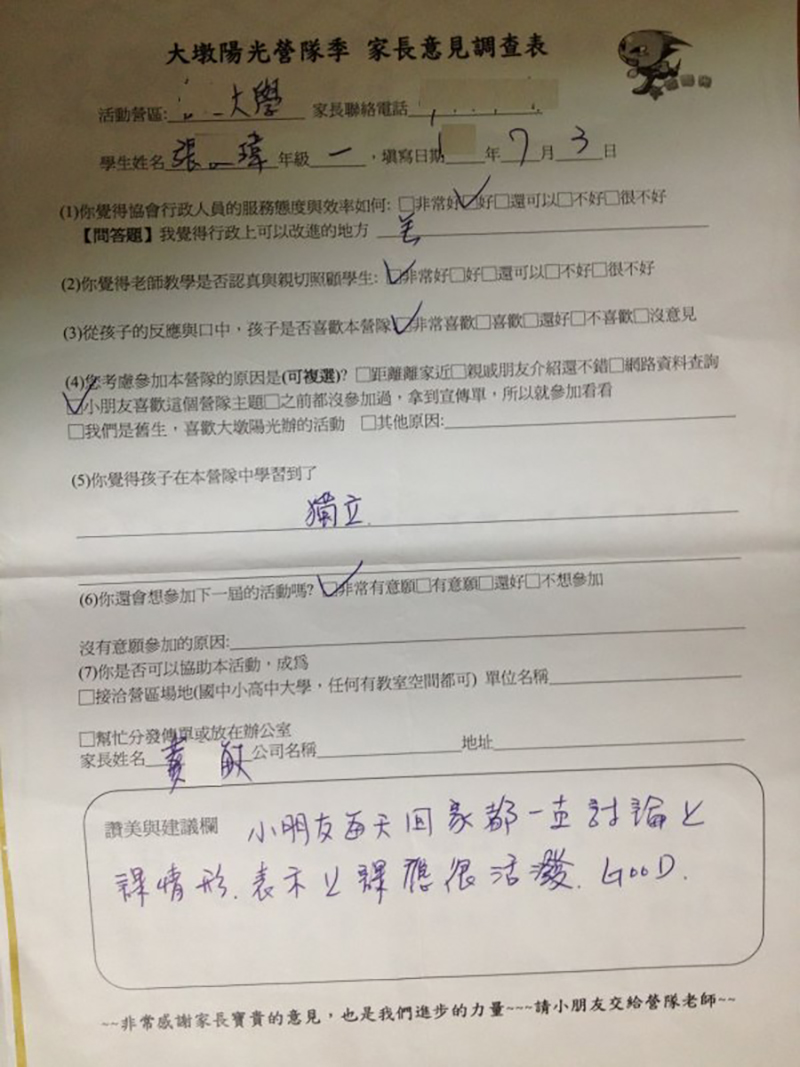 大墩陽光營隊季 家長意見調查表
活動營區: 大學 家長聯絡電話
學生姓名 張 瑋 年級 一 ,填寫日期 年 7 月 3 日
(1)你覺得協會行政人員的服務態度與效率如何: □非常好□好□還可以□不好□很不好
【問答題】我覺得行政上可以改進的地方
(2)你覺得老師教學是否認真與親切照顧學生: □非常好□好□還可以□不好□很不好
(3)從孩子的反應與口中,孩子是否喜歡本營隊□非常喜歡□喜歡□還好□不喜歡□沒意見
(4)您考慮參加本營隊的原因是(可複選)? □距離離家近□親戚朋友介紹還不錯□網路資料查詢
□小朋友喜歡這個營隊主題□之前都沒參加過,拿到宣傳單,所以就參加看看
□我們是舊生,喜歡大墩陽光辦的活動 □其他原因:
(5)你覺得孩子在本營隊中學習到了
獨立
(6)你還會想參加下一屆的活動嗎? □非常有意願□有意願□還好□不想參加
沒有意願參加的原因:
(7)你是否可以協助本活動,成為
□接洽營區場地(國中小高中大學,任何有教室空間都可) 單位名稱
□幫忙分發傳單或放在辦公室
家長姓名 黃 敏 公司名稱 地址
讚美與建議欄 小朋友每天回家都一直討論上
課情形.表示上課應很活潑. GOOD.
~~非常感謝家長寶貴的意見,也是我們進步的力量~~~請小朋友交給營隊老師~~